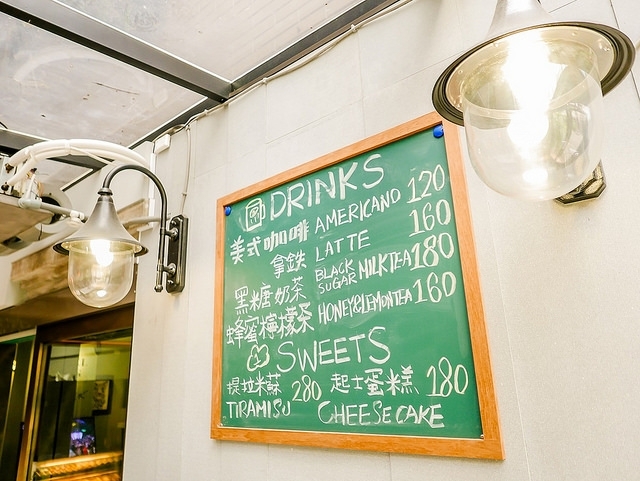 DRINKS
美式咖啡 AMERICANO 120
拿鉄 LATTE 160
黑糖奶茶 BLACK SUGAR MILKTEA 180
蜂蜜檸檬茶 HONEY&LEMONTEA 160
SWEETS
提拉米蘇 280 起士蛋糕 180
TIRAMISU CHEESE CAKE